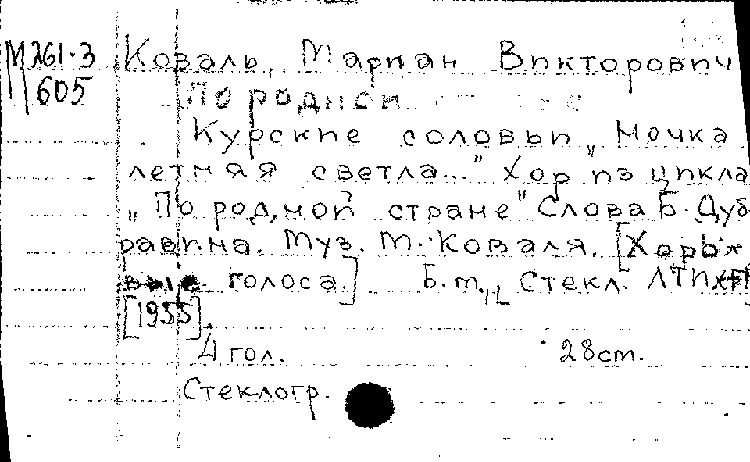 М261-3 Коваль, Мариан Викторович
605 По родной
Курские соловьи „Ночка
летняя светла..." Хор из цикла
„По родной стране" Слова Б. Дуб
равина. Муз. М. Коваля. [Хоры
вые голоса]. Б.м., Стекл.
[1955].
4 гол. 28 см.
Стеклогр.